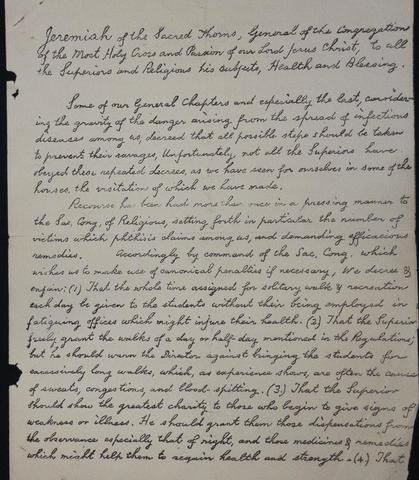 Jeremiah of the Sacred Thorns, General of the Congregation
of the Most Holy Cross and Passion of our Lord Jesus Christ, to all
the Superiors and Religious his subjects, Health and Blessing.
Some of our General Chapters and especially the last, consider-
ing the gravity of the danger arising from the spread of infectious
diseases among us, decreed that all possible steps should be taken
to prevent their ravages. Unfortunately, not all the Superiors have
obeyed these repeated decrees, as we have seen for ourselves in some of the
houses, the visitation of which we have made.
Recourse has been had more than once in a pressing manner to
the Sac. Cong. of Religious, setting forth in particular the number of
victims which phthisis claims among us, and demanding efficacious
remedies. Accordingly by command of the Sac. Cong. which
wishes us to make use of canonical penalties if necessary, We decree &
enjoin: (1) That the whole time assigned for solitary walk & recreation
each day be given to the students without their being employed in
fatiguing offices which might injure their health. (2) That the Superior
freely grant the walks of a day or half-day mentioned in the Regulations;
but he should warn the Director against bringing the students for
excessively long walks, which, as experience shows, are often the causes
of sweats, congestions, and blood-spitting. (3) That the Superior
should show the greatest charity to those who begin to give signs of
weakness or illness. He should grant them those dispensations from
the observance especially that of night, and those medicines & remedies
which might help them to regain health and strength - (4) That